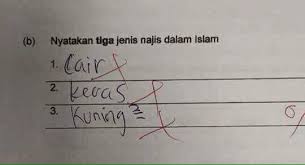 (b) Nyatakan tiga jenis najis dalam Islam
1. Cair
2. keras
3. Kuning
0